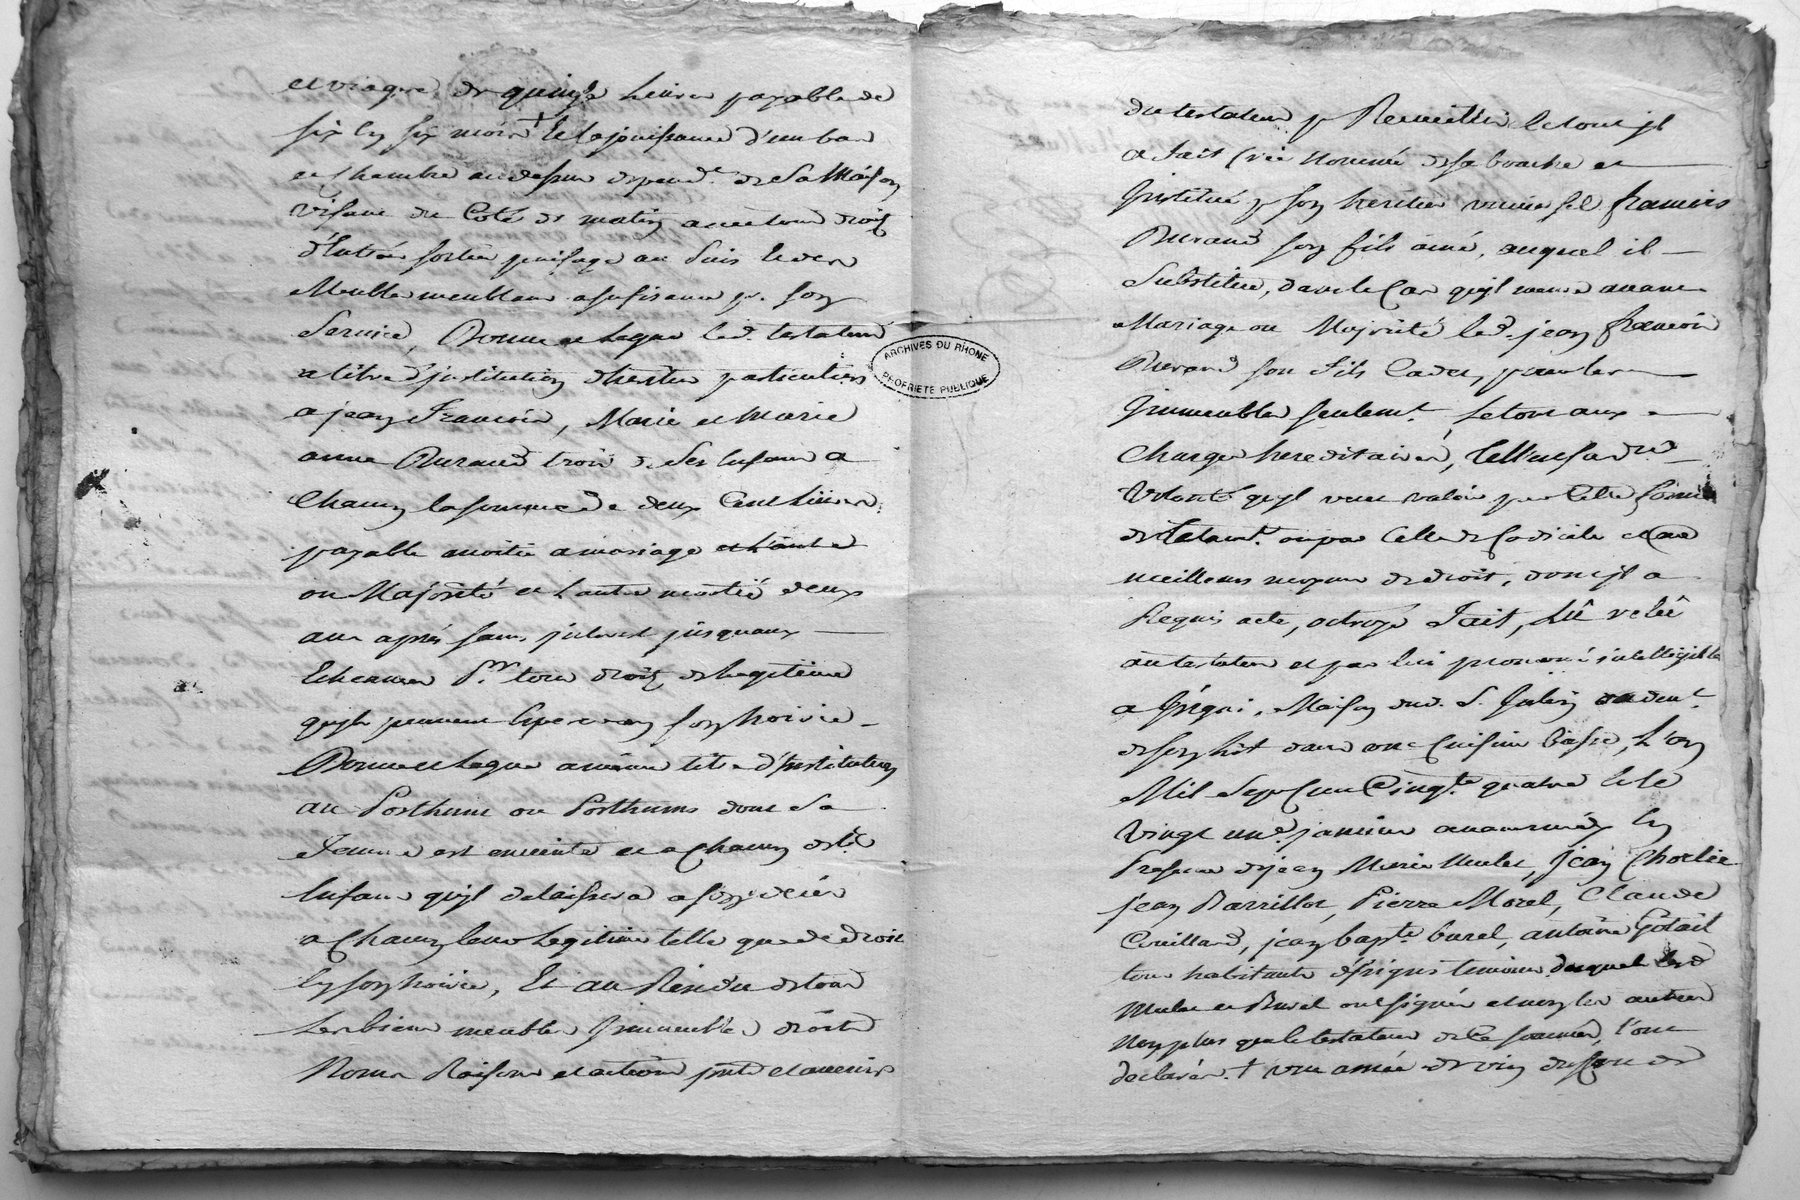 et viagere de quinze Livres payable de
six en six mois + Et la jouissance d'un bas
et Chambre au dessus dépend.t de Sa Maison
visant du Coté de matin avec tous droits
d'Entrée sortie puisage au puis Et des
Meubles meublans a sufisance pr. son
Service, Donne et Legue led. testateur
a titre d'institution d'heritier particuliers
a jean Francois, Marie et Marie
anne Durand trois de Ses Enfans a
Chacun la somme de deux Cent Livres,
payable moitié a mariage et L'autre
ou Majorité et L'autre moitié deux
ans après sans interet jusquaux
Echeances Pr. tous droits de Legitime
qu'ils peuvent Esperer en son hoirie
Donne et Legue a même titre d'Institution
au Posthume ou Posthumes dont Sa
Femme est enceinte et a Chacun desd.
Enfans qu'il delaissera a son decès
a Chacun leur Legitime telle que de droit
En son hoirie, Et au Residu de tous
Ses biens meubles Immeubles droits
Noms Raisons et actions pnts et avenirs
ARCHIVES DU RHONE
PROPRIETE PUBLIQUE
du testateur Le tout il
a fait Crée Nommé de sa bouche et
Institué pr son heritier universel francois
Durand son fils ainé, auquel il
Substitue, dans le Cas qu'il meure avant
Mariage ou Majorité led. jean francois
Durand son fils Cadet, pour les
Immeubles seulemt. Le tout aux
Charges hereditaires, Telle est sa dre
Volonté qu'il veut valoir par Cette forme
de testamt. ou par Celle de Codicile et aux
meilleurs moyens de droit, dont il a
Requis acte, octroyé Fait, Lû relû
au testateur et par lui prononcé intelligible
a Grigni, Maison dud. S.
de son lit dans une Cuisine basse, L'an
Mil Sept Cent Cinqte. quatre Et le
Vingt un janvier avant midy En
Presence de jean Marie Mulet, Jean Charlie
jean Barrillot, Pierre Morel, Claude
Couillard, jean bapte. burel, antoine
tous habitants de Grigni temoins desquels Lesd
Mulet et Burel ont signés et non les autres
Non plus que le testateur de Ce sommés, l'ont
declarés. + une année de vin